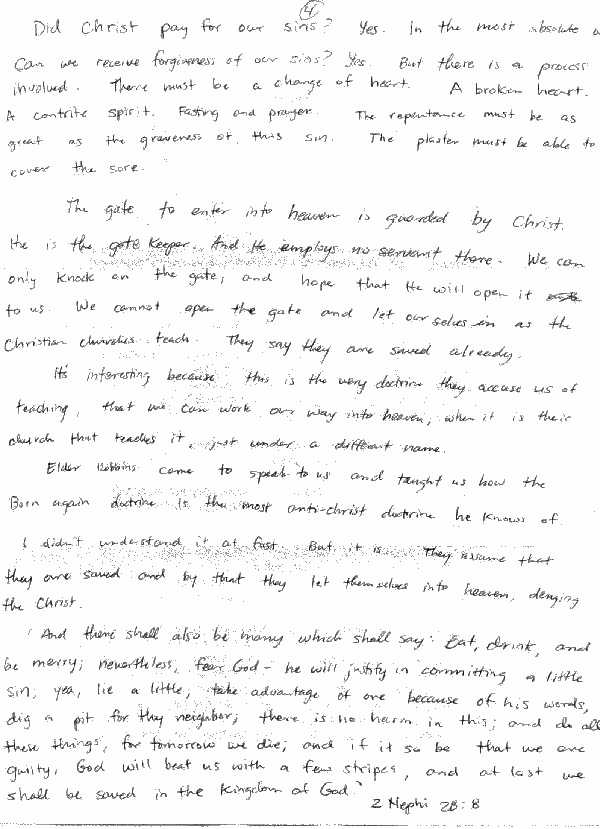 4
Did Christ pay for our sins? Yes. In the most absolute
Can we receive forgiveness of our sins? Yes. But there is a process
involved. There must be a change of heart. A broken heart.
A contrite spirit. Fasting and prayer. The repentance must be as
great as the graveness of this sin. The plaster must be able to
cover the sore.
The gate to enter into heaven is guarded by Christ.
He is the gate keeper. And He employs no servant there. We can
only knock on the gate, and hope that He will open it
to us. We cannot open the gate and let ourselves in as the
Christian churches teach. They say they are saved already.
It's interesting because this is the very doctrine they accuse us of
teaching, that we can work our way into heaven, when it is their
church that teaches it, just under a different name.
Elder Robbins came to speak to us and taught us how the
Born again doctrine is the most anti-christ doctrine he knows of.
I didn't understand it at first. But it is. They assume that
they are saved and by that they let themselves into heaven, denying
the Christ.
"And there shall also be many which shall say: Eat, drink, and
be merry; nevertheless, fear God - he will justify in committing a little
sin; yea, lie a little, take advantage of one because of his words,
dig a pit for thy neighbor; there is no harm in this; and do all
these things, for tomorrow we die; and if it so be that we are
guilty, God will beat us with a few stripes, and at last we
shall be saved in the Kingdom of God."
2 Nephi 28:8